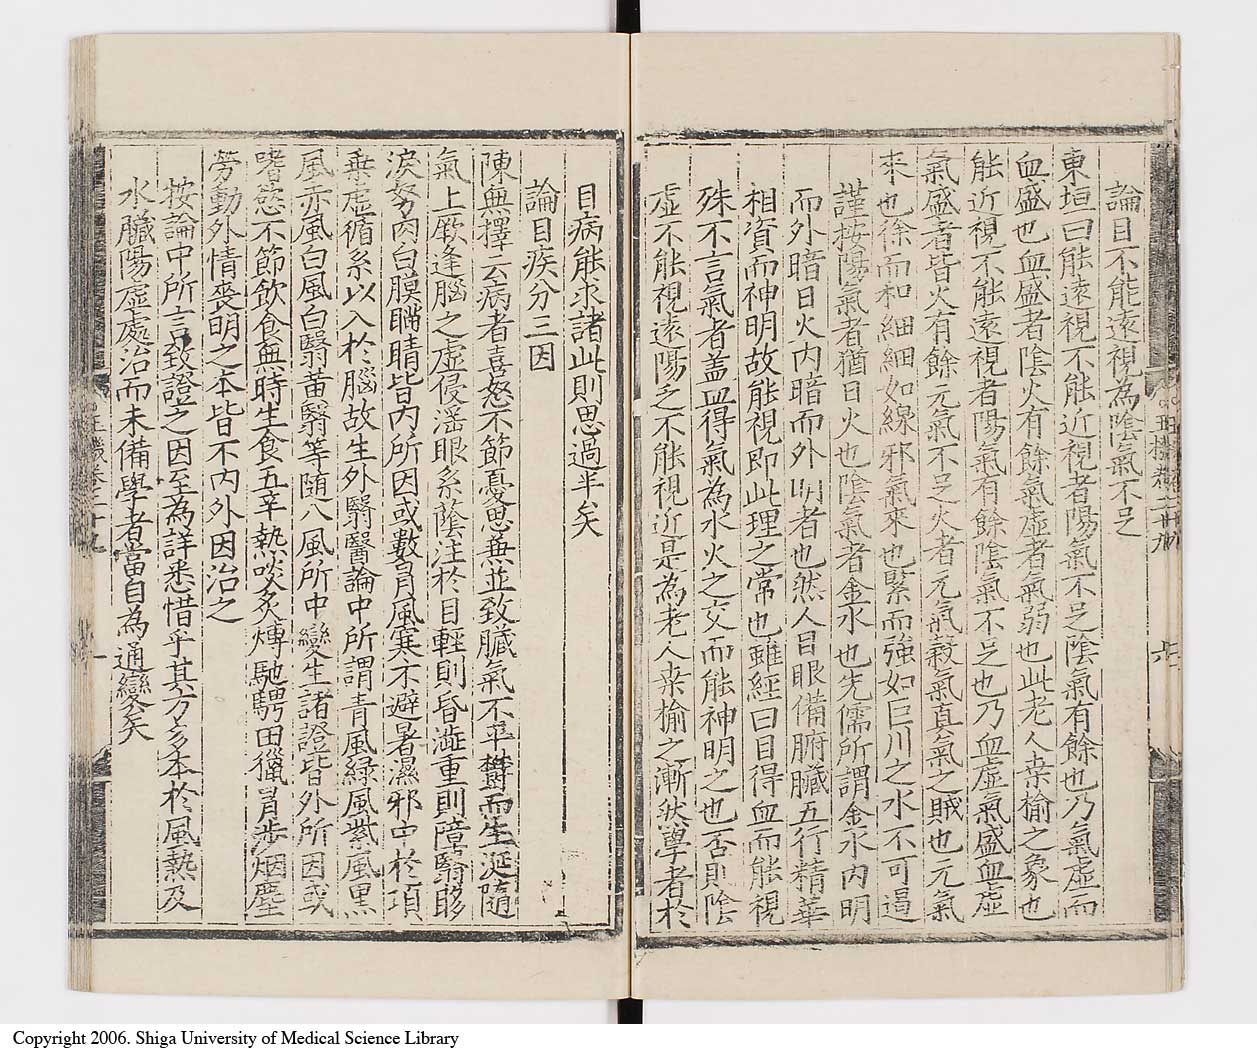 論目不能遠視為陰氣不足
東垣曰能遠視不能近視者陽氣不足陰氣有餘也乃氣虛而
血盛也血盛者陰火有餘氣虛者氣弱也此老人桒榆之象也
能近視不能遠視者陽氣有餘陰氣不足也乃血虛氣盛血虛
氣盛者皆火有餘元氣不足火者元氣穀氣真氣之賊也元氣
來也徐而和細細如線邪氣來也緊而強如巨川之水不可遏
謹按陽氣者猶日火也陰氣者金水也先儒所謂金水內明
而外暗日火內暗而外明者也然人目眼備腑臟五行精華
相資而神明故能視即此理之常也雖經曰目得血而能視
殊不言氣者盖血得氣為水火之交而能神明之也否則陰
虛不能視遠陽乏不能視近是為老人桒榆之漸然學者於
目病能求諸此則思過半矣
論目疾分三因
陳無擇云病者喜怒不節憂思兼並致臟氣不平欝而生涎隨
氣上厥逢腦之虛侵滛眼系蔭注於目輕則昏澁重則障翳眵
淚努肉白膜瞞睛皆內所因或數冐風寒不避暑濕邪中於項
乗虛循系以入於腦故生外翳醫論中所謂青風綠風紫風黒
風赤風白風白翳黄翳等随八風所中變生諸證皆外所因或
嗜慾不節飲食無時生食五辛熱啖炙煿馳騁田獵冐渉烟塵
勞動外情喪明之本皆不內外因治之
按論中所言致證之因至為詳悉惜乎其方多本於風熱及
水臟陽虛處治而未備學者當自為通變矣